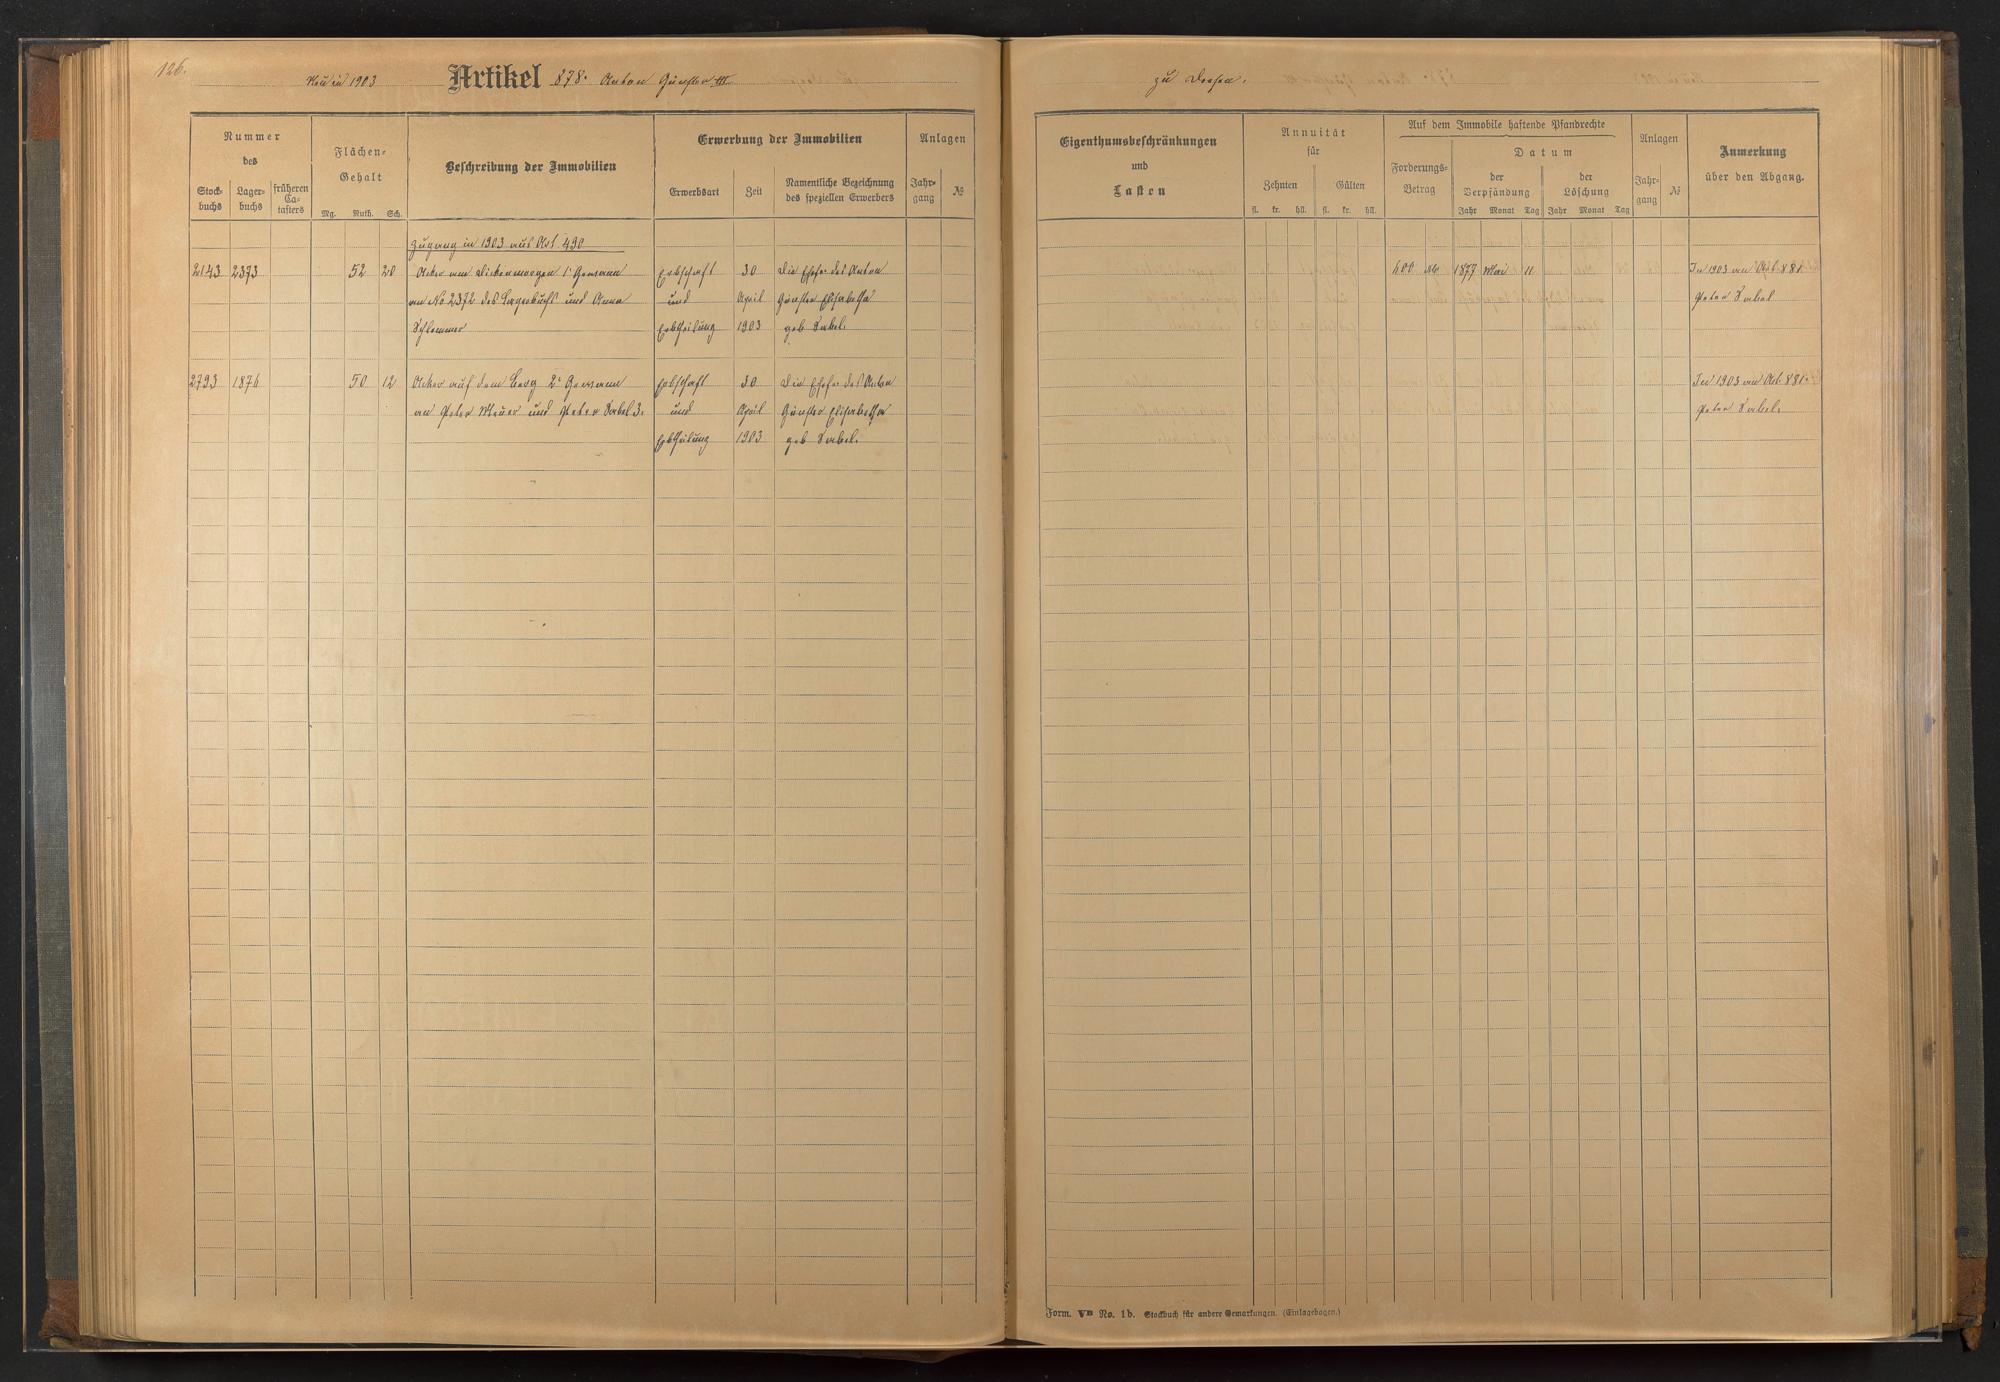 126.
Neu in 1903 Artikel 878. Anton Günster III zu Dorsen.
Nummer
des
Stock-
buchs
Lager-
buchs
früheren
Ca-
tasters
Flächen-
Gehalt
Mg. Ruth. Sch.
Beschreibung der Immobilien
Erwerbung der Immobilien
Erwerbsart
Zeit
Namentliche Bezeichnung
des speziellen Erwerbers
Anlagen
Jahr-
gang
№
Eigenthumsbeschränkungen
und
Lasten
Annuität
für
Zehnten
Gülten
fl. kr. hll. fl. kr. hll.
Auf dem Immobile haftende Pfandrechte
Forderungs-
Betrag
Datum
der
Verpfändung
der
Löschung
Jahr Monat Tag Jahr Monat Tag
Anlagen
Jahr-
gang
№
Anmerkung
über den Abgang.
Zugang in 1903 aus Art. 490
2143 2373 52 20 Acker am Dickenmorgen 1r Gewann Erbschaft 30 Die Ehefr. des Anton 600 Mk 1877 Mai 11 In 1903 an Art. 881.
an No 2372 des Lagerbuchs und Anna und April Günster Elisabetha Peter Sabel
Schlemmer Erbtheilung 1903 geb. Sabel.
2793 1876 50 12 Acker auf dem Berg 2r Gewann Erbschaft 30 Die Ehefr. des Anton In 1903 an Art. 881.
an Peter Meuer und Peter Sabel 3. und April Günster Elisabetha Peter Sabel.
Erbtheilung 1903 geb. Sabel.
Form. VB No. 1b. Stockbuch für andere Gemarkungen. (Einlagebogen.)